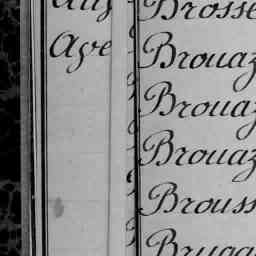 Aye
Brosse
Brouaz
Brouaz
Brouaz
Brouss
Brugg